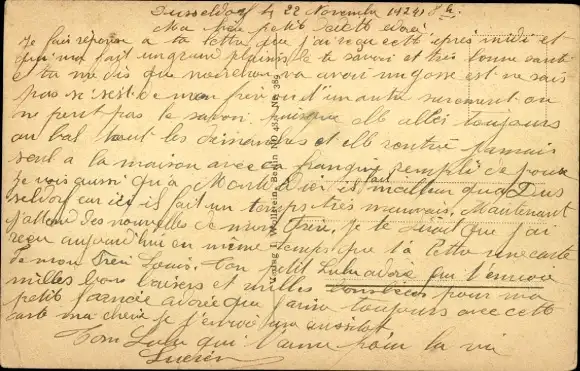 Dusseldorf le 22 Novembre 1924 8 h.
Ma bien petit adoré
Je fais réponse a ta lettre que j'ai reçu cett après midi et
qui ma fait un grand plaisir de te savoir et très bonne santé
tu me dis que va avoir un gosse est ne sais
pas si s'est de mon frère ou d'un autre surement on
ne peut pas le savoir puisque elle allée toujours
au bal tout les dimanches et elle rentré jamais
seul a la maison avec sa rempli de
je vois aussi qu'a il fait meilleur qu'a Dus
seldorf car ici il fait un temps très mauvais. Maintenant
j'attend des nouvelles de mon frère. Je te dirait que j'ai
reçu aujourd'hui en même temps que ta lettre une carte
de mon frère Louis. Ton petit Lulu adoré qui t'envoie
milles bons baisers et milles pour ma
petit adorée que j'aime toujours avec cett
carte ma cherie je t'envoie une aussitot
Ton Lulu qui t'aime pour la vie
Lucien
Verlag J. Wollstein, Berlin NO 43 No. 389